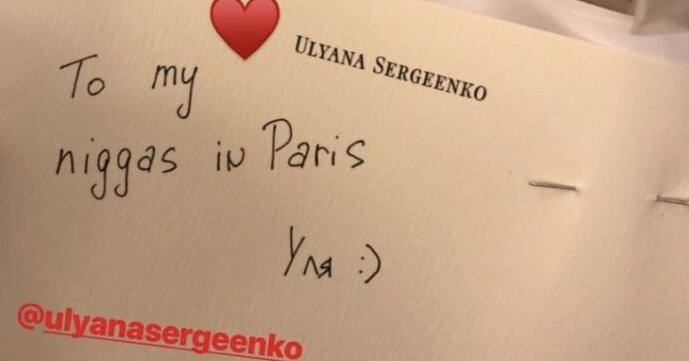 ULYANA SERGEENKO
To my
niggas in Paris
Уля :)
@ulyanasergeenko